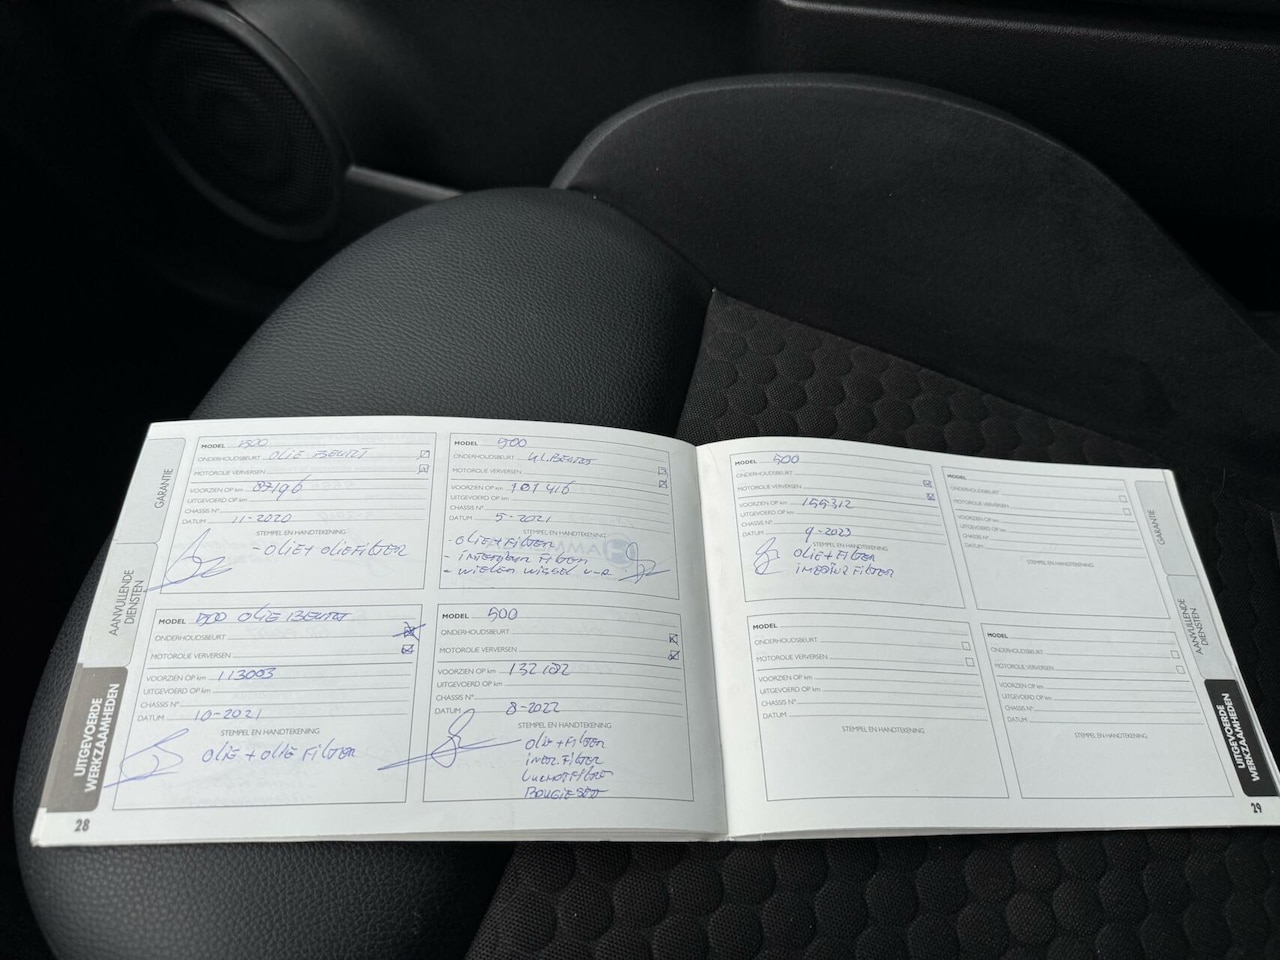 GARANTIE
AANVULLENDE
DIENSTEN
UITGEVOERDE
WERKZAAMHEDEN
28
MODEL 500
ONDERHOUDSBEURT OLIE BEURT
MOTOROLIE VERVERSEN
VOORZIEN OP km 87196
UITGEVOERD OP km
CHASSIS N°
DATUM 11-2020
STEMPEL EN HANDTEKENING
- OLIE + OLIEFILTER
MODEL 500
ONDERHOUDSBEURT KL. BEURT
MOTOROLIE VERVERSEN
VOORZIEN OP km 101416
UITGEVOERD OP km
CHASSIS N°
DATUM 5-2021
STEMPEL EN HANDTEKENING
- OLIE + FILTER
- INTERIEUR FILTER
- WIELEN WISSEL V-A
MODEL 500 OLIE BEURT
ONDERHOUDSBEURT
MOTOROLIE VERVERSEN
VOORZIEN OP km 113003
UITGEVOERD OP km
CHASSIS N°
DATUM 10-2021
STEMPEL EN HANDTEKENING
OLIE + OLIE FILTER
MODEL 500
ONDERHOUDSBEURT
MOTOROLIE VERVERSEN
VOORZIEN OP km 132182
UITGEVOERD OP km
CHASSIS N°
DATUM 8-2022
STEMPEL EN HANDTEKENING
OLIE + FILTER
INTER. FILTER
LUCHTFILTER
BOUGIESET
MODEL 500
ONDERHOUDSBEURT
MOTOROLIE VERVERSEN
VOORZIEN OP km 155312
UITGEVOERD OP km
CHASSIS N°
DATUM 9-2023
STEMPEL EN HANDTEKENING
OLIE + FILTER
FILTER
MODEL
ONDERHOUDSBEURT
MOTOROLIE VERVERSEN
VOORZIEN OP km
UITGEVOERD OP km
CHASSIS N°
DATUM
STEMPEL EN HANDTEKENING
MODEL
ONDERHOUDSBEURT
MOTOROLIE VERVERSEN
VOORZIEN OP km
UITGEVOERD OP km
CHASSIS N°
DATUM
STEMPEL EN HANDTEKENING
MODEL
ONDERHOUDSBEURT
MOTOROLIE VERVERSEN
VOORZIEN OP km
UITGEVOERD OP km
CHASSIS N°
DATUM
STEMPEL EN HANDTEKENING
GARANTIE
AANVULLENDE
DIENSTEN
UITGEVOERDE
WERKZAAMHEDEN
29